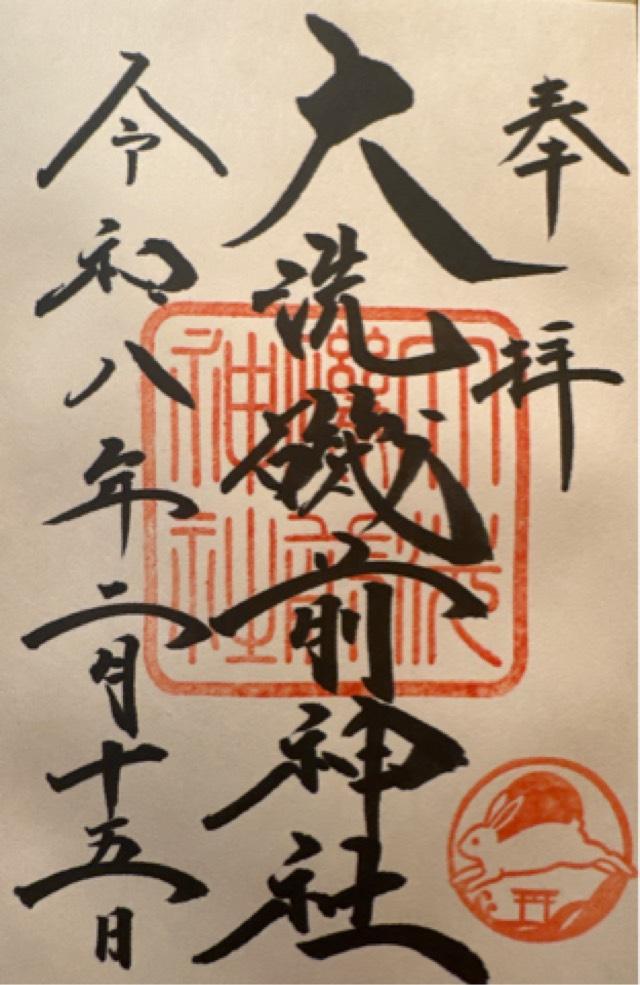 奉拝
大洗磯前神社
大洗磯前神社
令和八年二月十五日